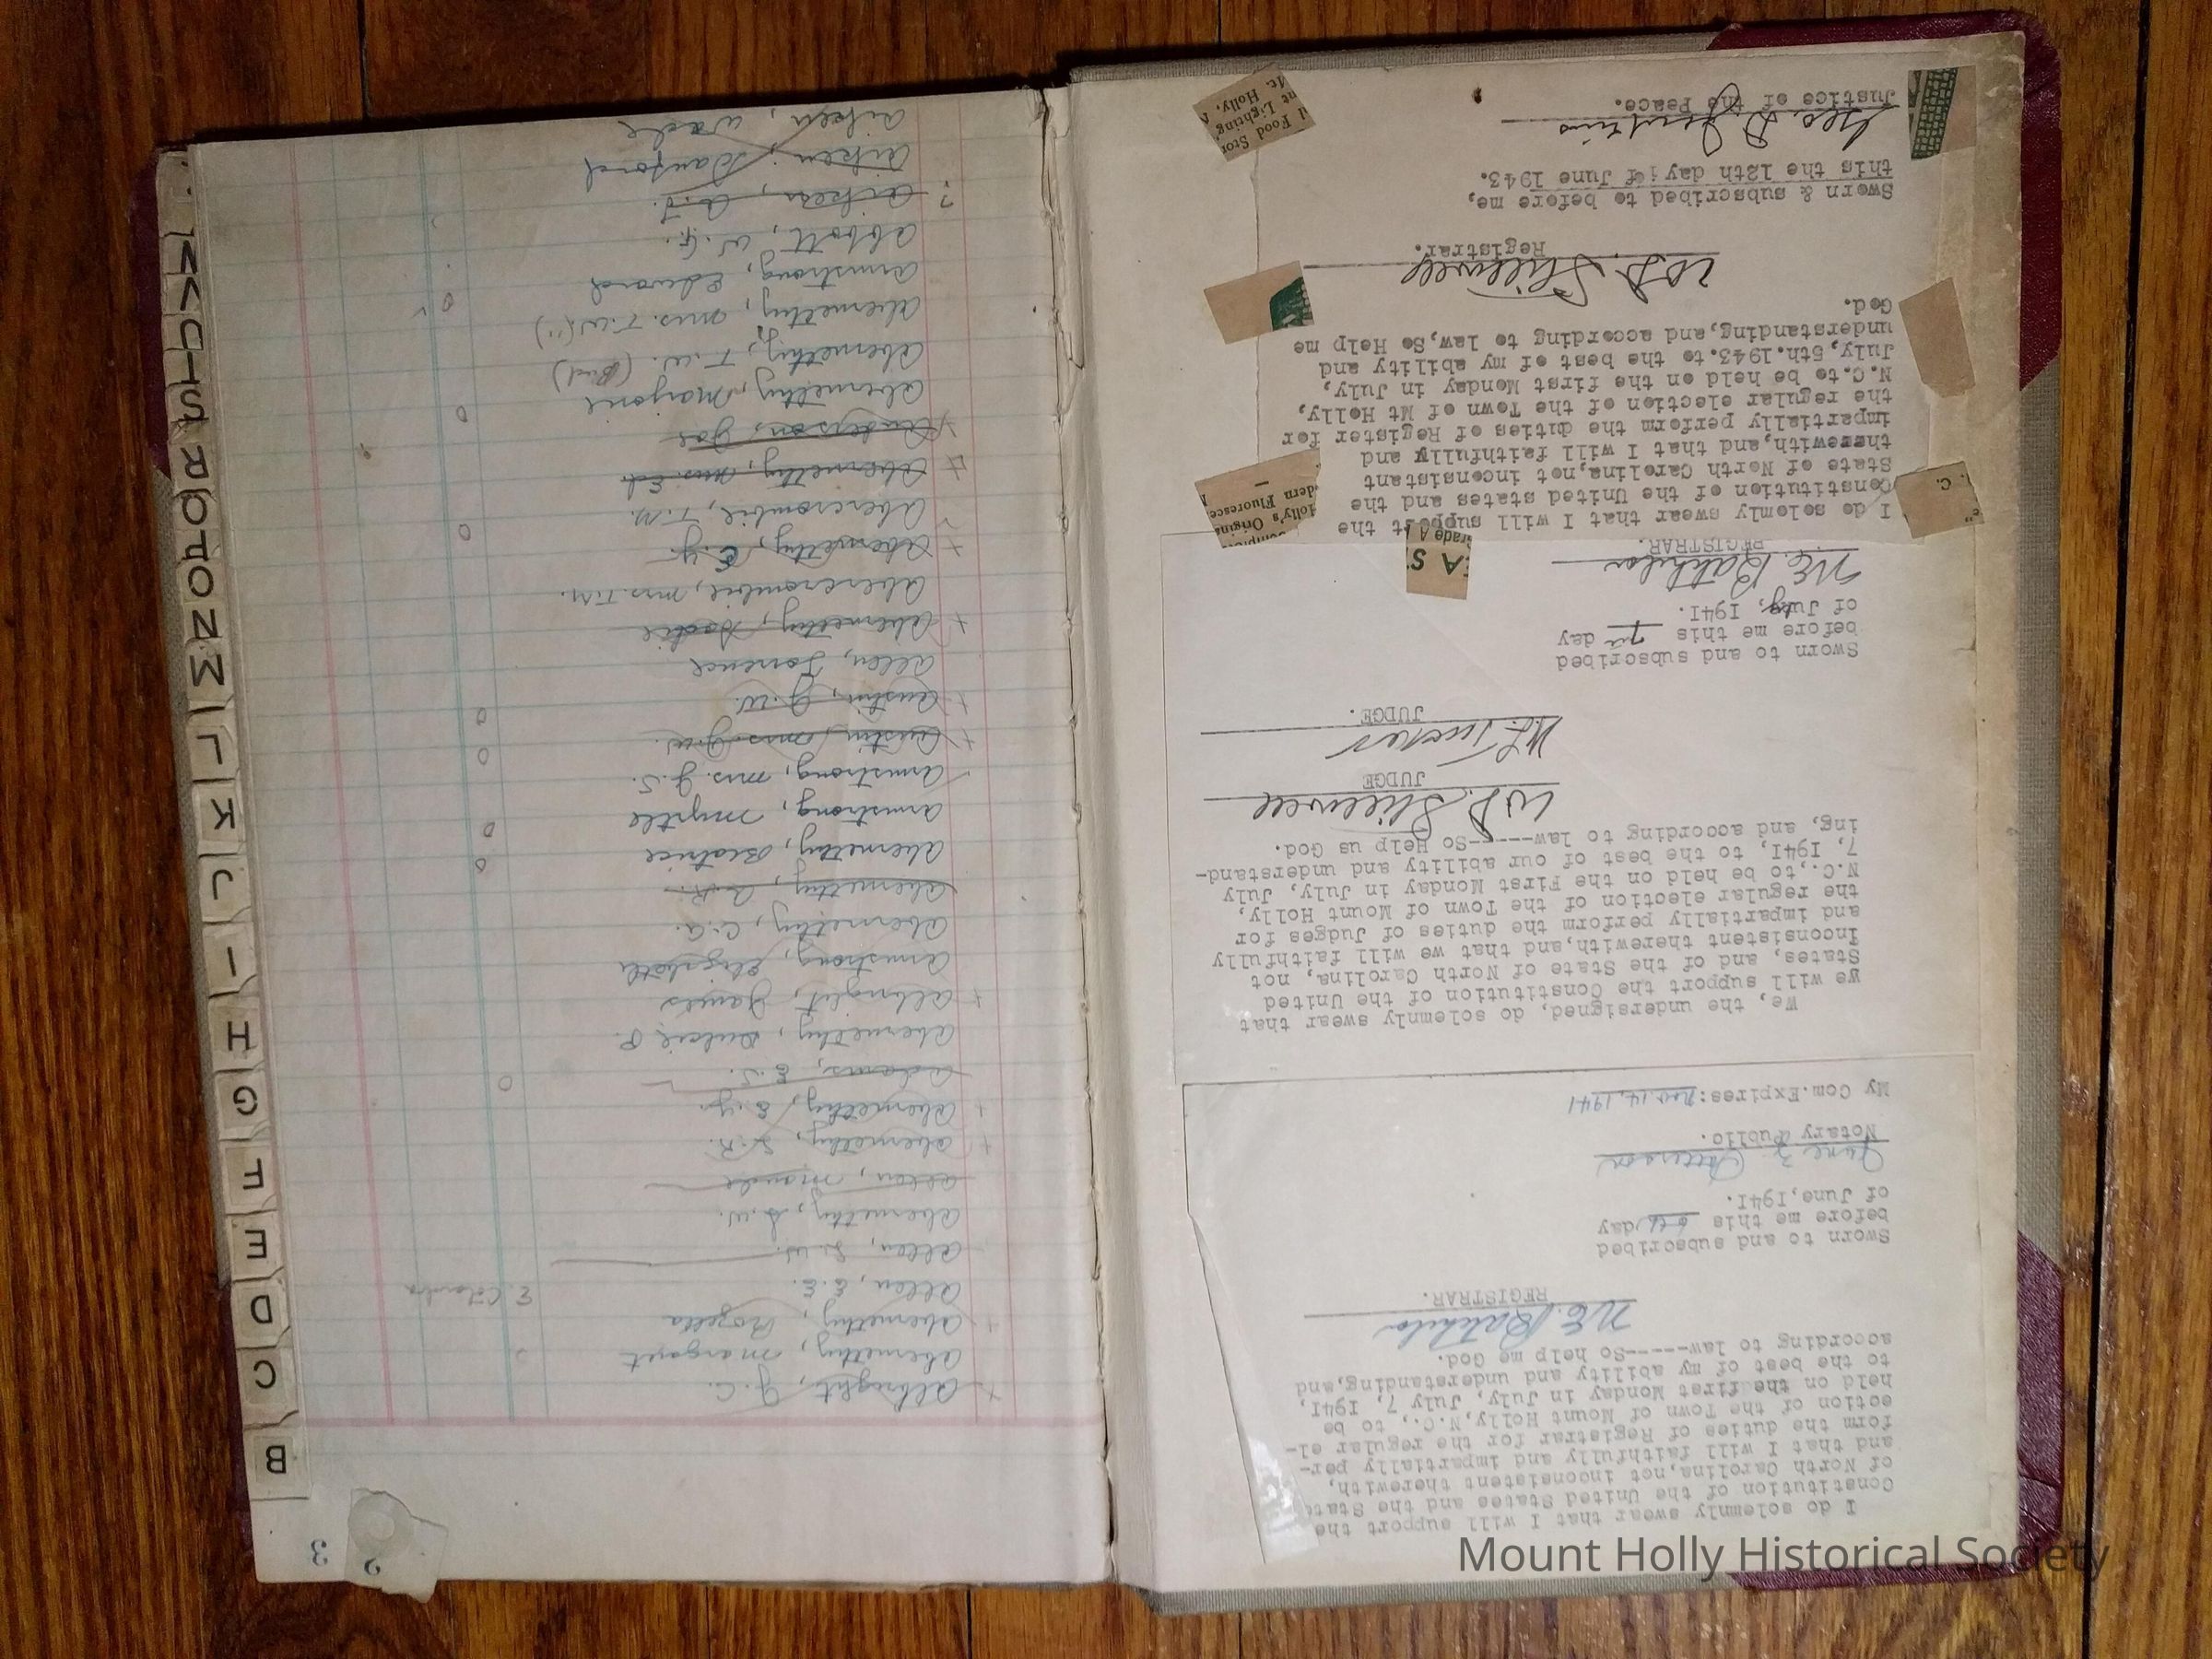 I do solemnly swear that I will support the
Constitution of the United States and the State
of North Carolina,not inconsistent therewith,
and that I will faithfully and impartially per-
form the duties of Registrar for the regular el-
ection of the Town of Mount Holly,N.C., to be
held on the first Monday in July, July 7, I94I,
to the best of my ability and understanding,and
according to law-----So help me God.
REGISTRAR.
Sworn to and subscribed
before me this 6th day
of June,I94I.
Notary Public.
My Com.Expires: Nov. 14, 1941
We, the undersigned, do solemnly swear that
we will support the Constitution of the United
States, and of the State of North Carolina, not
Inconsistent therewith,and that we will faithfully
and impartially perform the duties of Judges for
the regular election of the Town of Mount Holly,
N.C.,to be held on the First Monday in July, July
7, I94I, to the best of our ability and understand-
ing, and according to law-----So Help us God.
W.D. Stillwell
JUDGE
JUDGE.
Sworn to and subscribed
before me this 7th day
of July, I94I.
REGISTRAR.
I do solemly swear that I will support the
Constitution of the United states and the
State of North Carolina,not inconsistant
therewith,and that I will faithfully and
impartially perform the duties of Register for
the regular election of the Town of Mt Holly,
N.C.to be held on the first Monday in July,
July,5th.1943.to the best of my ability and
understanding,and according to law,So Help me
God.
W.D. Stillwell
Registrar.
Sworn & subscribed to before me,
this the 12th day of June 1943.
Justice of the Peace.
2
3
+ Albright, J.C.
Abernethy, Margaret
+ Abernethy, Rozella
Allen, E.E.
Allen, L.W.
Abernethy, S.W.
Allen, Maude
+ Abernethy, L.R.
+ Abernethy, E.Y.
Adams, E.S.
Abernethy,
+ Albright, James
Armstrong, Elizabeth
Abernethy, C.A.
Abernethy, A.R.
Abernethy, Beatrice
Armstrong, Myrtle
Armstrong, Mrs. J.S.
+ Austin, Mrs. J.W.
+ Austin, J.W.
Allen, Torrence
+ Abernethy, Sadie
Abercrombie, Mrs. T.M.
+ Abernethy, E.Y.
Abercrombie, T.M.
+ Abernethy, Mrs. Ed
+ Anderson, Joe
Abernethy, Marjorie
Abernethy, T.W. (Bud)
Abernethy, Mrs. T.W. (")
Armstrong, Edward
Abbott, W.G.
? Aiken, A.T.
Aiken, Sanford
Aiken, Wade
B
C
D
E
F
G
H
I
J
K
L
M
N
O
P
Q
R
S
T
U
V
Mount Holly Historical Society